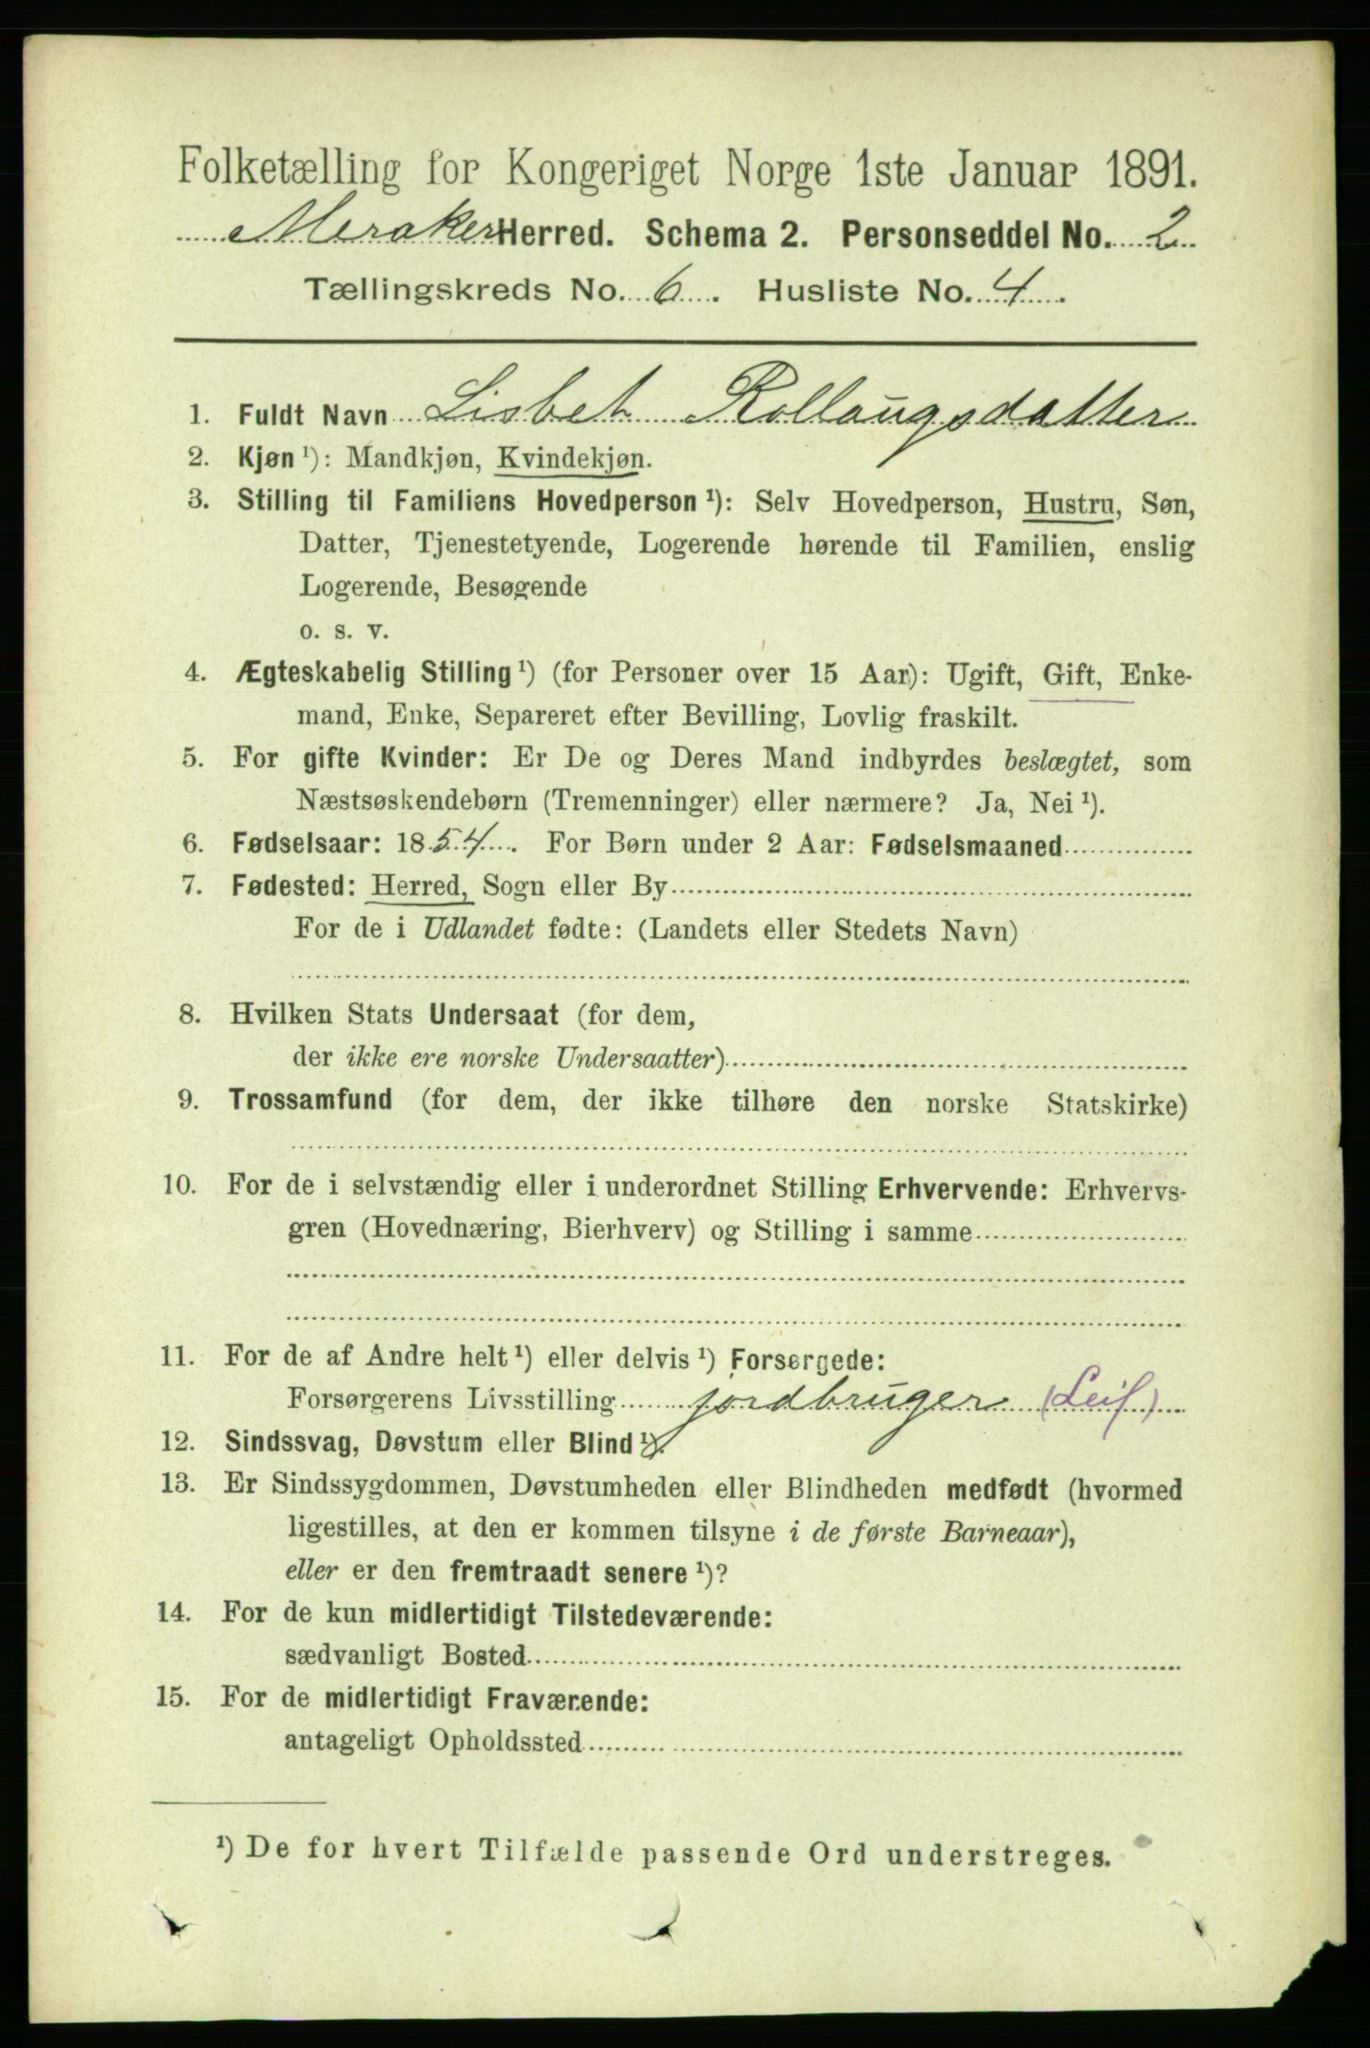 Folketælling for Kongeriget Norge 1ste Januar 1891.
Meraker Herred. Schema 2. Personseddel No. 2
Tællingskreds No. 6. Husliste No. 4.
1. Fuldt Navn Lisbet Rollaugsdatter
2. Kjøn ¹): Mandkjøn, Kvindekjøn.
3. Stilling til Familiens Hovedperson ¹): Selv Hovedperson, Hustru, Søn,
Datter, Tjenestetyende, Logerende hørende til Familien, enslig
Logerende, Besøgende
o. s. v.
4. Ægteskabelig Stilling ¹) (for Personer over 15 Aar): Ugift, Gift, Enke-
mand, Enke, Separeret efter Bevilling, Lovlig fraskilt.
5. For gifte Kvinder: Er De og Deres Mand indbyrdes beslægtet, som
Næstsøskendebørn (Tremenninger) eller nærmere? Ja, Nei ¹).
6. Fødselsaar: 1854. For Børn under 2 Aar: Fødselsmaaned
7. Fødested: Herred, Sogn eller By
For de i Udlandet fødte: (Landets eller Stedets Navn)
8. Hvilken Stats Undersaat (for dem,
der ikke ere norske Undersaatter)
9. Trossamfund (for dem, der ikke tilhøre den norske Statskirke)
10. For de i selvstændig eller i underordnet Stilling Erhvervende: Erhvervs-
gren (Hovednæring, Bierhverv) og Stilling i samme
11. For de af Andre helt ¹) eller delvis ¹) Forsørgede:
Forsørgerens Livsstilling jordbruger (Leif)
12. Sindssvag, Døvstum eller Blind ¹).
13. Er Sindssygdommen, Døvstumheden eller Blindheden medfødt (hvormed
ligestilles, at den er kommen tilsyne i de første Barneaar),
eller er den fremtraadt senere ¹)?
14. For de kun midlertidigt Tilstedeværende:
sædvanligt Bosted
15. For de midlertidigt Fraværende:
antageligt Opholdssted
¹) De for hvert Tilfælde passende Ord understreges.